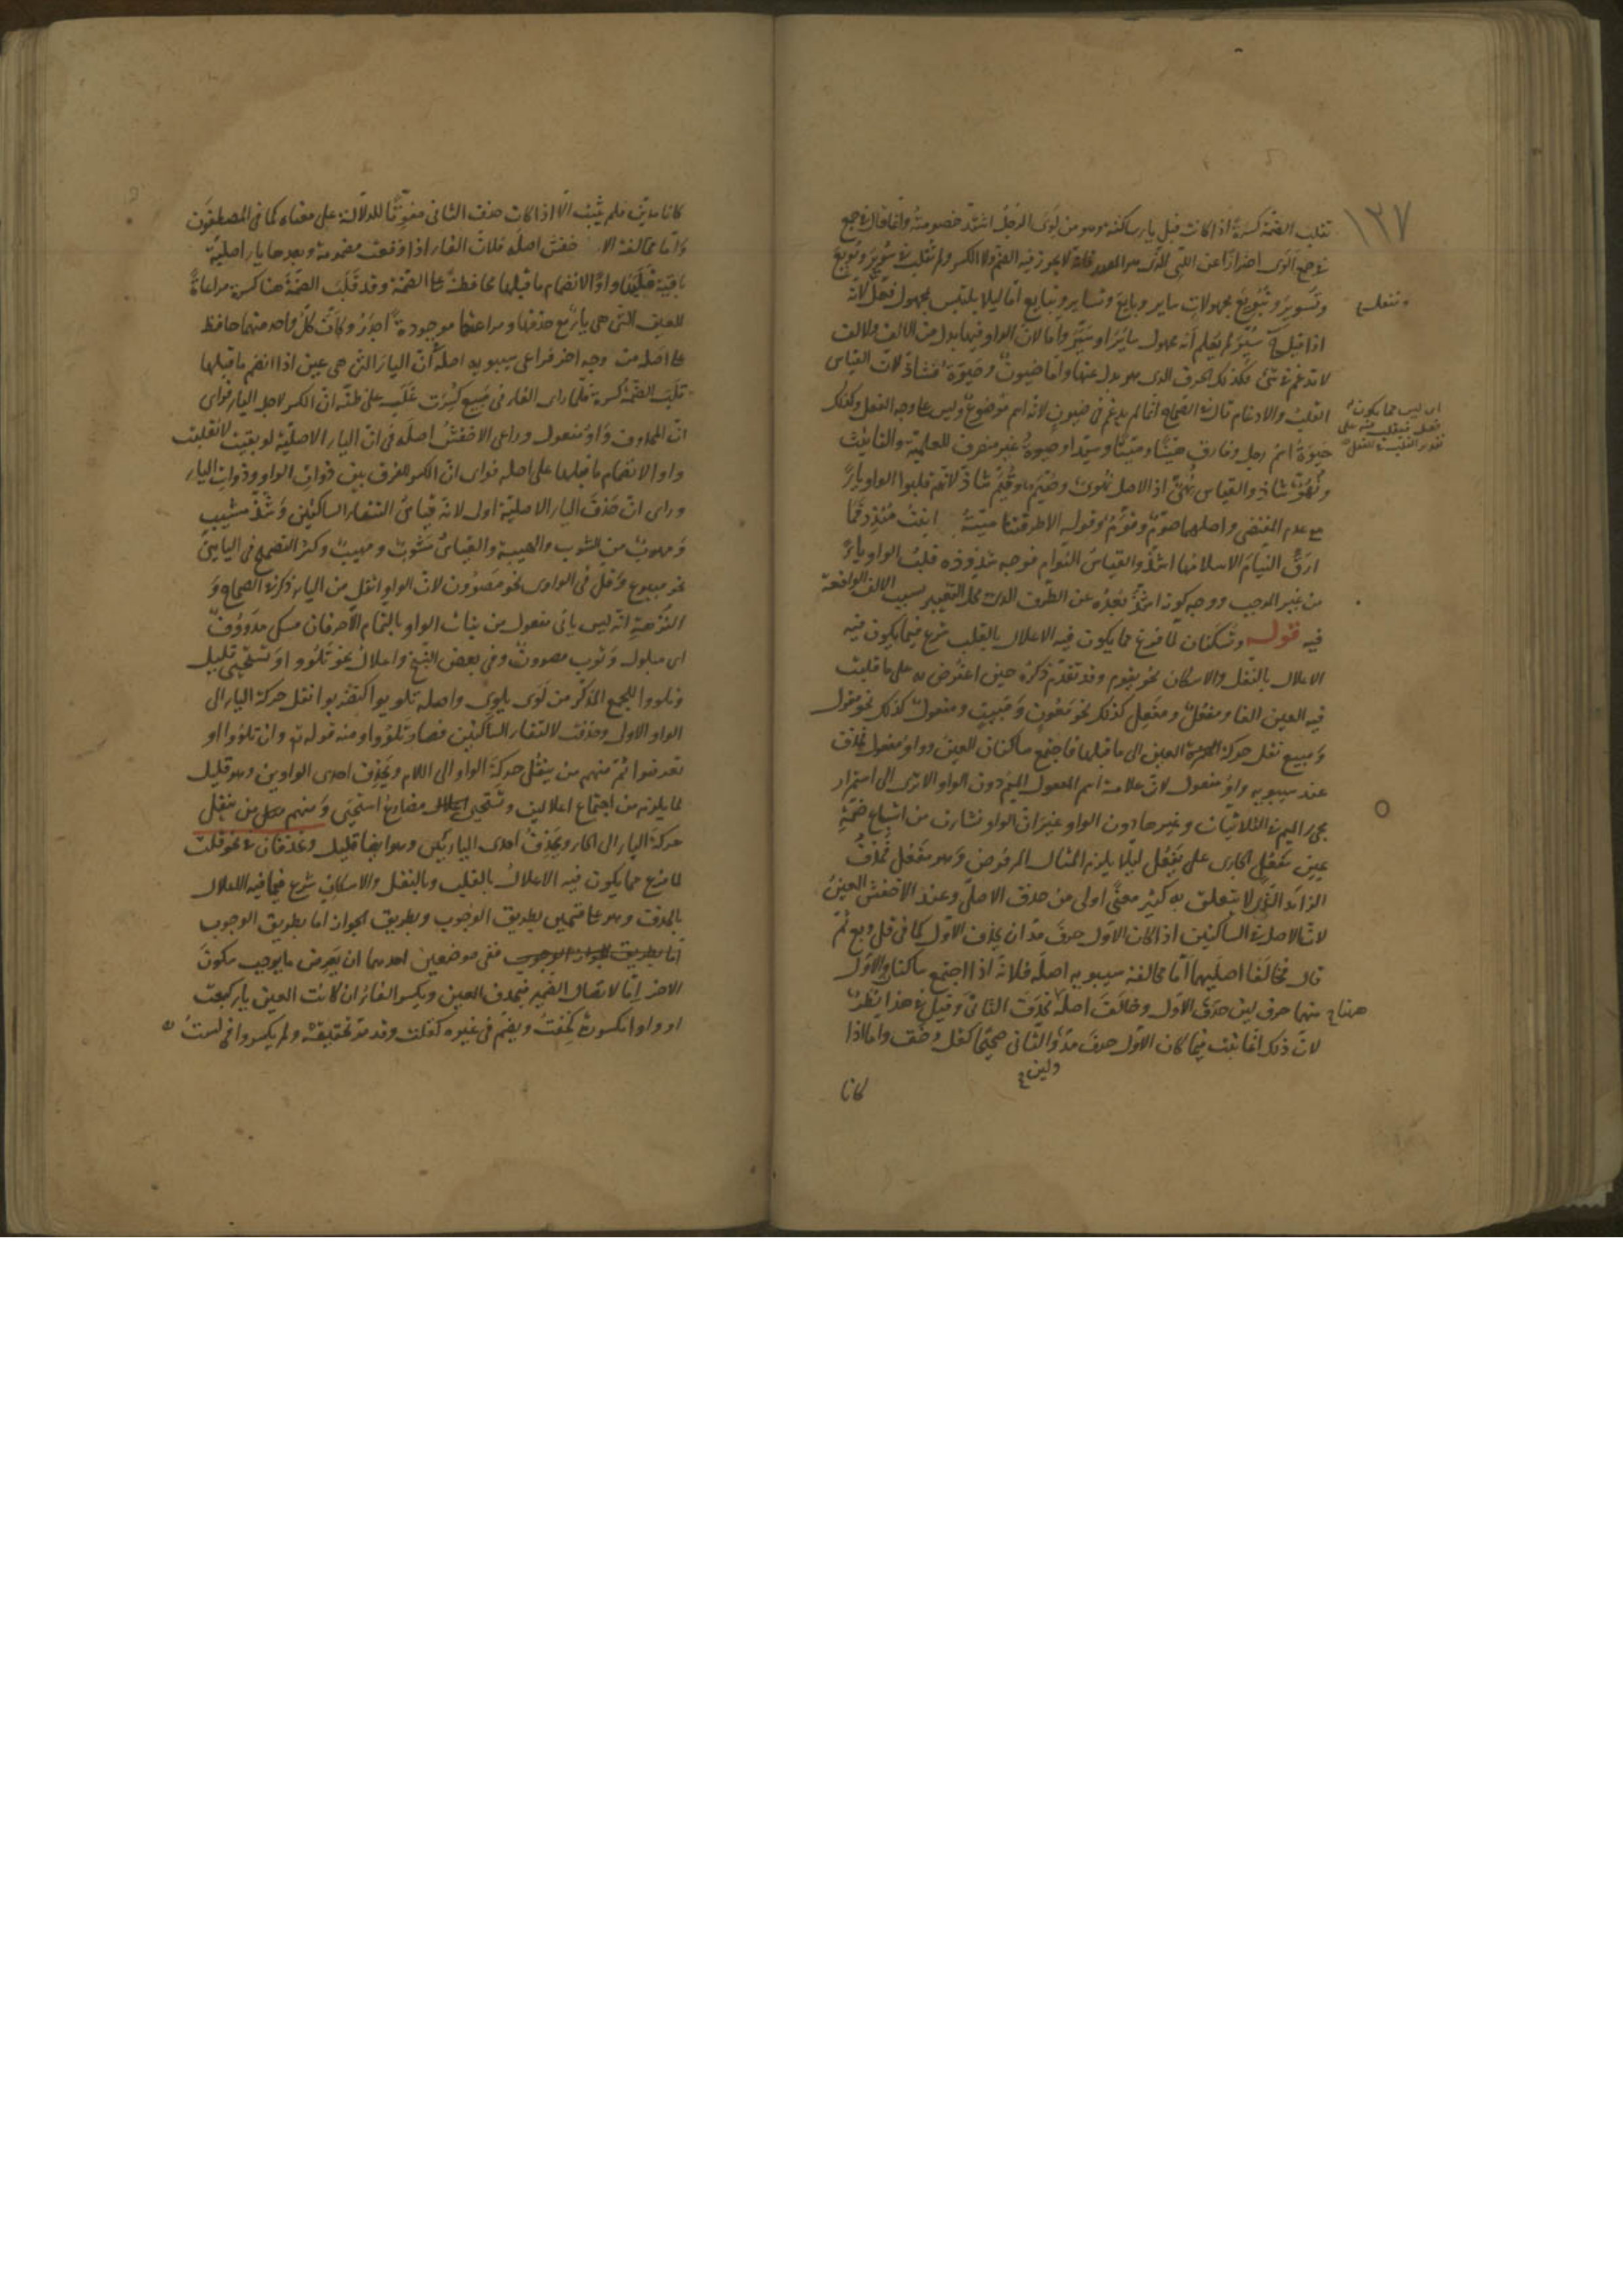 ١٣٧
تقلب الضمة كسرة اذا كانت قبل ياء ساكنة وهو من لوى الرجل اشتد خصومته وانما قال في جمع
في جمع الوى احترازا عن اللي الذي هو المصدر فانه لا يجوز فيه الضم ولا الكسر ولم تقلب في سوير وبويع
وتسوير وتبويع مجهولات ساير وبايع وتساير وتبايع اما ليلا يلتبس بمجهول فعل لانه
اذا قيل سير لم يعلم انه مجهول ساير او سير واما لان الواو فيها بدل من الالف والالف
لا تدغم في شئ فكذلك الحرف الذي هو بدل عنها واما ضيون وحيوة فشاذ لان القياس
القلب والادغام قال في الصحاح انما لم يدغم في ضيون لانه اسم موضوع وليس على وجه الفعل وكذلك
حيوة اسم رجل وفارق هينا وميتا وسيدا وحيوة غير منصرف للعلمية والتانيث
ونهو شاذ والقياس نهي اذ الاصل نهوي وصيم وقيم شاذ لانهم قلبوا الواو ياء
مع عدم المقتضى واصلهما صوم وقوم وقوله الا طرقتنا مية ابنة منذر فما
ارق النيام الا سلامها اشذ والقياس النوام فوجه شذوذه قلب الواو ياء
من غير الموجب ووجه كونه اشذ بعده عن الطرف الذي محل التغيير بسبب الالف الواقعة
فيه قوله وتسكنان لما فرغ مما يكون فيه الاعلال بالقلب شرع فيما يكون فيه
الاعلال بالنقل والاسكان نحو يقوم وقد تقدم ذكره حين اعترض به على ما قلبت
فيه العين الفا ومفعل ومفعل كذلك نحو معون ومبيت ومفعول كذلك نحو مقول
ومبيع نقل حركة العين الى ما قبلها فاجتمع ساكنان العين وواو مفعول فحذف
عند سيبويه واو مفعول لان علامة اسم المفعول الميم دون الواو الا ترى الى استمرار
مجئ الميم في الثلاثيات وغيرها دون الواو غير ان الواو نشات من اشباع ضمة
عين مفعل الجارى على يفعل ليلا يلزم المثال المرفوض وهو مفعل فحذف
الزائد الذي لا يتعلق به كثير معنى اولى من حذف الاصلي وعند الاخفش العين
لان الاصل في الساكنين اذا كان الاول حرف مد ان يحذف الاول كما في قل وبع ثم
قال فخالفا اصليهما اما مخالفة سيبويه اصله فلانه اذا اجتمع ساكنان والاول
منهما حرف لين حذف الاول وخالف اصله هنا فحذف الثاني وقيل في هذا نظر
لان ذلك انما يثبت فيما كان الاول حرف مد ولين والثاني صحيحا كقل وخف واما اذا
كانا
كانا مدين فلم يثبت الا اذا كان حذف الثاني مفوتا للدلالة على معناه كما في المصطفون
واما مخالفة الاخفش اصله فلان الفاء اذا وقعت مضمومة وبعدها ياء اصلية
باقية قلبها واوا لانضمام ما قبلها محافظة على الضمة وقد قلب الضمة هنا كسرة مراعاة
للعين التي هي ياء مع حذفها ومراعتها موجودة اجدر وكان كل واحد منهما حافظ
على اصله من وجه اخر فراعى سيبويه اصله ان الياء التي هي عين اذا انضم ما قبلها
قلب الضمة كسرة فلما راى الفاء في مبيع كسرت غلب على ظنه ان الكسر لاجل الياء فراى
ان المحذوف واو مفعول وراعى الاخفش اصله في ان الياء الاصلية لو بقيت لانقلبت
واوا لانضمام ما قبلها على اصله فراى ان الكسر للفرق بين ذوات الواو وذوات الياء
وراى ان حذف الياء الاصلية اولى لانه قياس التقاء الساكنين وشذ مشيب
ومهوب من الشوب والهيبة والقياس مشوب ومهيب وكثر التصحيح في اليائي
نحو مبيوع وقل في الواوى نحو مصوون لان الواو اثقل من الياء ذكر في الصحاح
انه ليس ياتي مفعول من بنات الواو بالتمام الا حرفان مسك مدووف
اى مبلول وثوب مصوون وفي بعض النسخ واعلال نحو تلوو او تستحيي قليل
وتلووا للجمع المذكر من لوى يلوى واصله تلويوا كتضربوا نقل حركة الياء الى
الواو الاول وحذفت لالتقاء الساكنين فصار تلووا ومنه قوله تع وان تلووا او
تعرضوا ثم منهم من ينقل حركة الواو الى اللام ويحذف احدى الواوين وهو قليل
لما يلزم من اجتماع اعلالين وتستحيي مضارع استحيى ومنهم من ينقل
حركة الياء الى الحاء ويحذف احدى اليائين وهو ايضا قليل وتحذفان في نحو قلت
لما فرغ مما يكون فيه الاعلال بالقلب وبالنقل والاسكان شرع فيما فيه الاعلال
بالحذف وهو على قسمين بطريق الوجوب وبطريق الجواز اما بطريق الوجوب
ففي موضعين احدهما ان يعرض ما يوجب سكون
الاخر اما لاتصال الضمير فيحذف العين ويكسر الفاء ان كانت العين ياء كبعت
او واوا مكسورة كخفت ويضم في غيره كقلت وقد مر تحقيقه ولم يكسروا في لست